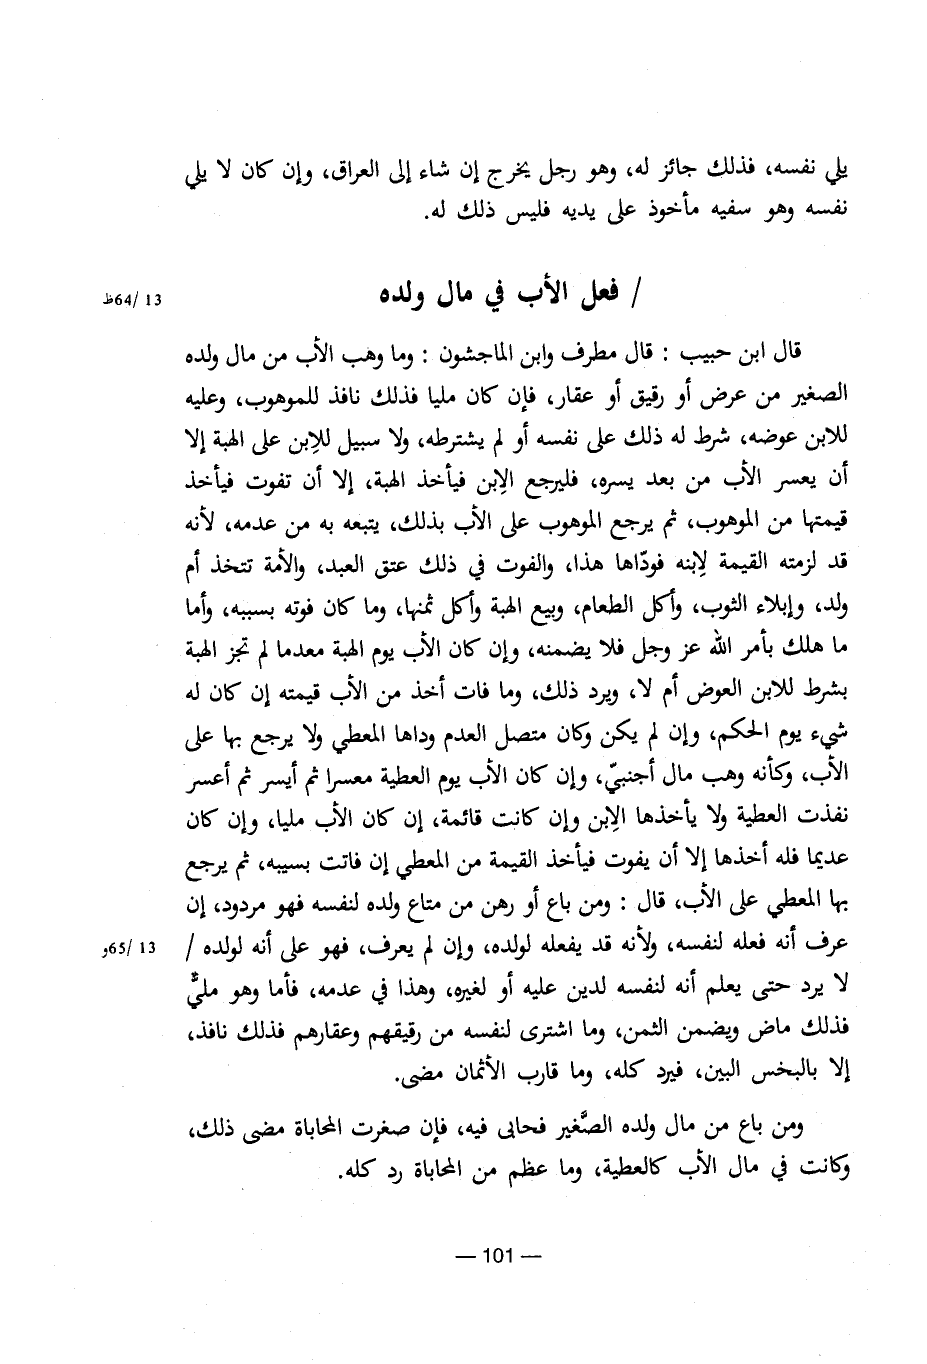 يلي نفسه، فذلك جائز له، وهو رجل يخرج إن شاء إلى العراق، وإن كان لا يلي
نفسه وهو سفيه مأخوذ على يديه فليس ذلك له.
/ فعل الأب في مال ولده
13 /64ظ
قال ابن حبيب : قال مطرف وابن الماجشون : وما وهب الأب من مال ولده
الصغير من عرض أو رقيق أو عقار، فإن كان مليا فذلك نافذ للموهوب، وعليه
للابن عوضه، شرط له ذلك على نفسه أو لم يشترطه، ولا سبيل للإبن على الهبة إلا
أن يعسر الأب من بعد يسره، فليرجع الإبن فيأخذ الهبة، إلا أن تفوت فيأخذ
قيمتها من الموهوب، ثم يرجع الموهوب على الأب بذلك، يتبعه به من عدمه، لأنه
قد لزمته القيمة لإبنه فودّاها هذا، والفوت في ذلك عتق العبد، والأمة تتخذ أم
ولد، وإبلاء الثوب، وأكل الطعام، وبيع الهبة وأكل ثمنها، وما كان فوته بسببه، وأما
ما هلك بأمر الله عز وجل فلا يضمنه، وإن كان الأب يوم الهبة معدما لم تجز الهبة
بشرط للابن العوض أم لا، ويرد ذلك، وما فات أخذ من الأب قيمته إن كان له
شيء يوم الحكم، وإن لم يكن وكان متصل العدم وداها المعطي ولا يرجع بها على
الأب، وكأنه وهب مال أجنبيّ، وإن كان الأب يوم العطية معسرا ثم أيسر ثم أعسر
نفذت العطية ولا يأخذها الإبن وإن كانت قائمة، إن كان الأب مليا، وإن كان
عديما فله أخذها إلا أن يفوت فيأخذ القيمة من المعطي إن فاتت بسيبه، ثم يرجع
بها المعطي على الأب، قال : ومن باع أو رهن من متاع ولده لنفسه فهو مردود، إن
عرف أنه فعله لنفسه، ولأنه قد يفعله لولده، وإن لم يعرف، فهو على أنه لولده /
13 /65و
لا يرد حتى يعلم أنه لنفسه لدين عليه أو لغيره، وهذا في عدمه، فأما وهو مليٌّ
فذلك ماض ويضمن الثمن، وما اشترى لنفسه من رقيقهم وعقارهم فذلك نافذ،
إلا بالبخس البين، فيرد كله، وما قارب الأثمان مضى.
ومن باع من مال ولده الصَّغير فحابى فيه، فإن صغرت المحاباة مضى ذلك،
وكانت في مال الأب كالعطية، وما عظم من المحاباة رد كله.
— 101 —